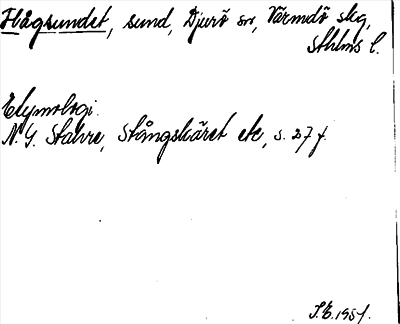 Flågsundet, sund, Djurö sn, Värmdö skg,
Sthlms l.
Etymologi.
N. G. Stahre, Stångskäret etc, s. 27 f.
1951.